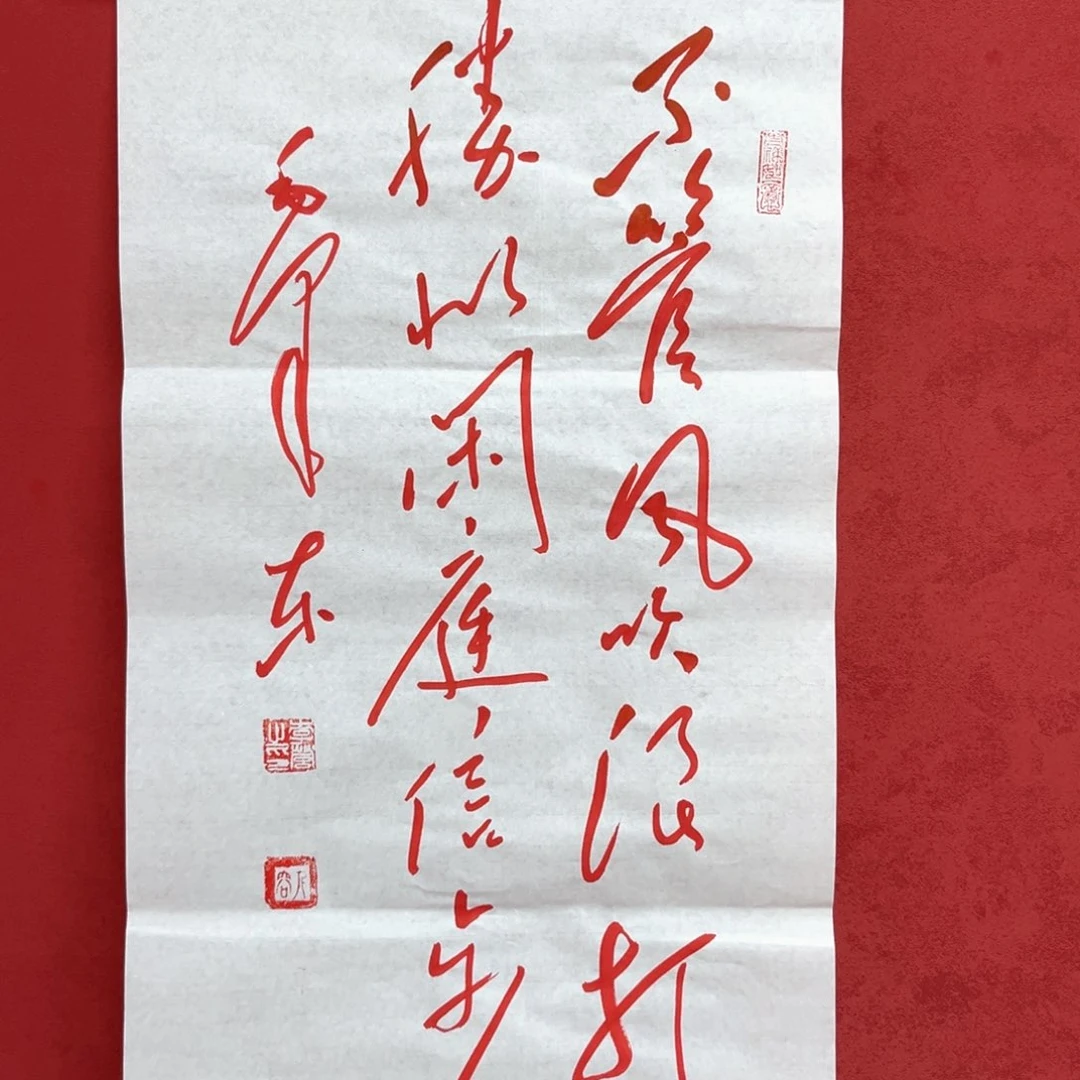 不管风吹浪打
勝似閑庭信步
毛泽东